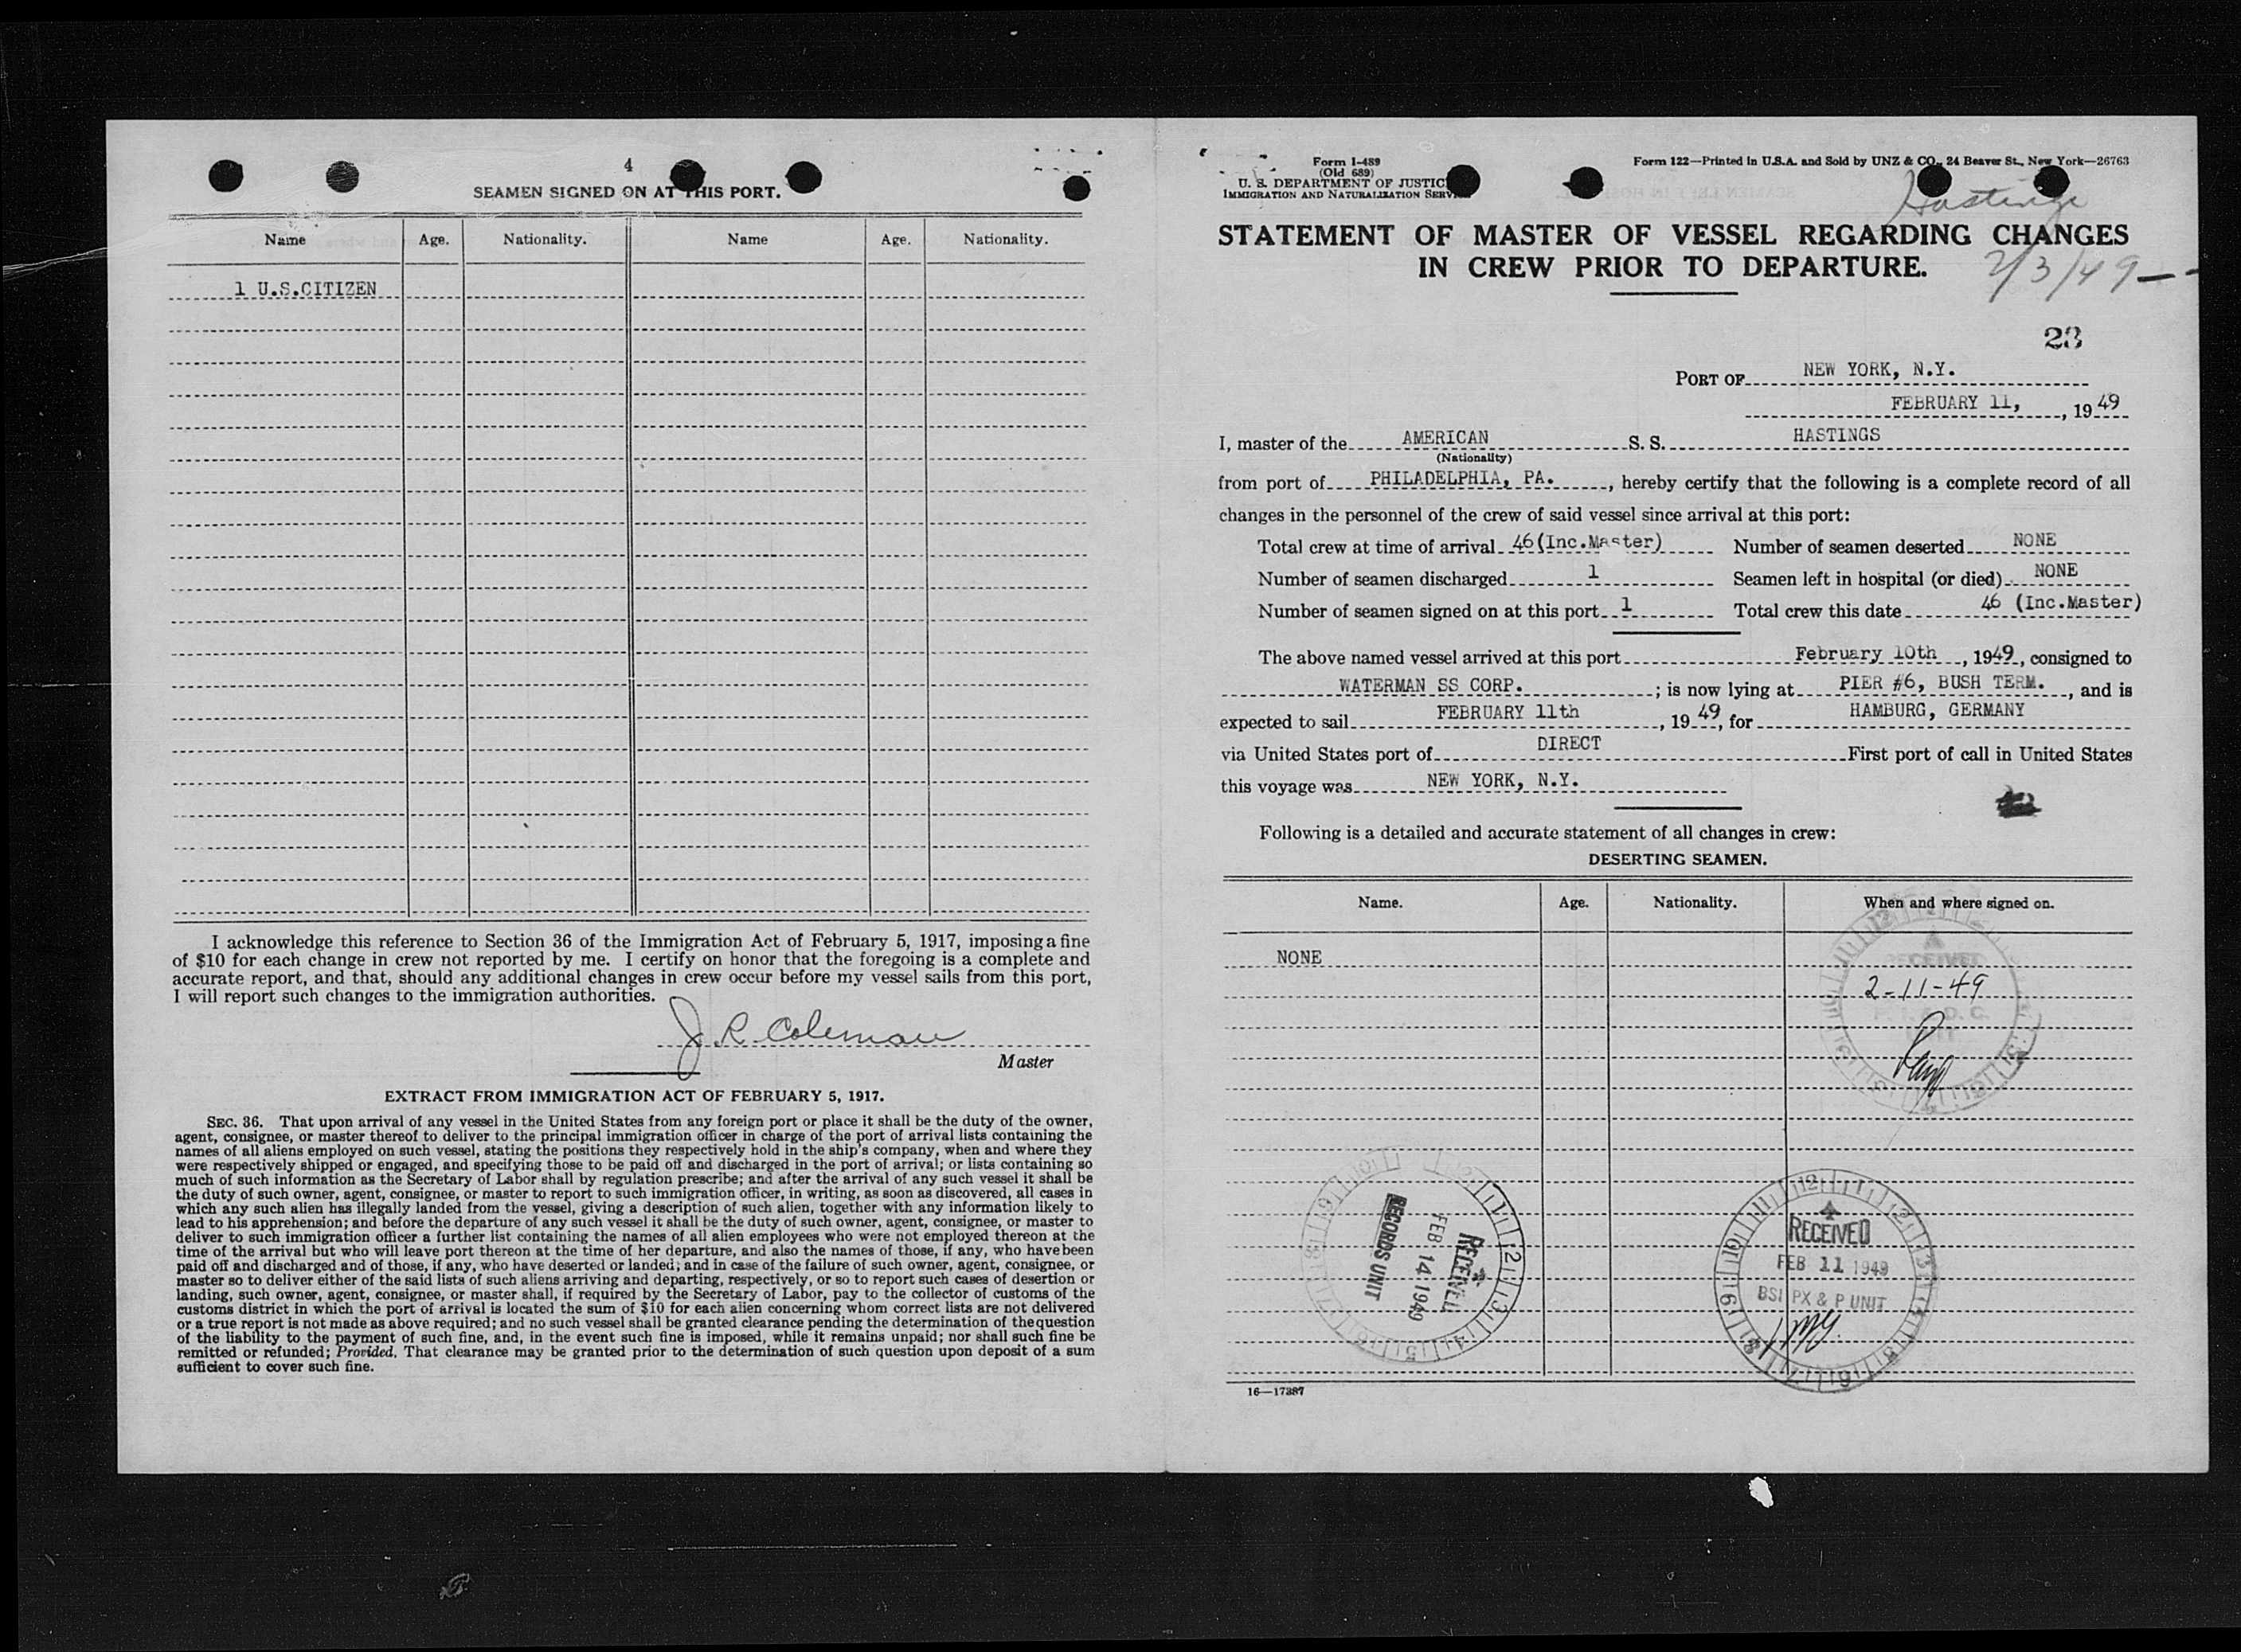 4
SEAMEN SIGNED ON AT THIS PORT.
Name Age. Nationality. Name Age. Nationality.
1 U.S.CITIZEN
I acknowledge this reference to Section 36 of the Immigration Act of February 5, 1917, imposing a fine
of $10 for each change in crew not reported by me. I certify on honor that the foregoing is a complete and
accurate report, and that, should any additional changes in crew occur before my vessel sails from this port,
I will report such changes to the immigration authorities.
J. R. Coleman
Master
EXTRACT FROM IMMIGRATION ACT OF FEBRUARY 5, 1917.
SEC. 36. That upon arrival of any vessel in the United States from any foreign port or place it shall be the duty of the owner,
agent, consignee, or master thereof to deliver to the principal immigration officer in charge of the port of arrival lists containing the
names of all aliens employed on such vessel, stating the positions they respectively hold in the ship's company, when and where they
were respectively shipped or engaged, and specifying those to be paid off and discharged in the port of arrival; or lists containing so
much of such information as the Secretary of Labor shall by regulation prescribe; and after the arrival of any such vessel it shall be
the duty of such owner, agent, consignee, or master to report to such immigration officer, in writing, as soon as discovered, all cases in
which any such alien has illegally landed from the vessel, giving a description of such alien, together with any information likely to
lead to his apprehension; and before the departure of any such vessel it shall be the duty of such owner, agent, consignee, or master to
deliver to such immigration officer a further list containing the names of all alien employees who were not employed thereon at the
time of the arrival but who will leave port thereon at the time of her departure, and also the names of those, if any, who have been
paid off and discharged and of those, if any, who have deserted or landed; and in case of the failure of such owner, agent, consignee, or
master so to deliver either of the said lists of such aliens arriving and departing, respectively, or so to report such cases of desertion or
landing, such owner, agent, consignee, or master shall, if required by the Secretary of Labor, pay to the collector of customs of the
customs district in which the port of arrival is located the sum of $10 for each alien concerning whom correct lists are not delivered
or a true report is not made as above required; and no such vessel shall be granted clearance pending the determination of the question
of the liability to the payment of such fine, and, in the event such fine is imposed, while it remains unpaid; nor shall such fine be
remitted or refunded; Provided, That clearance may be granted prior to the determination of such question upon deposit of a sum
sufficient to cover such fine.
Form 1-489
(Old 689)
U. S. DEPARTMENT OF JUSTICE
IMMIGRATION AND NATURALIZATION SERVICE
Form 122—Printed in U.S.A. and Sold by UNZ & CO., 24 Beaver St., New York—26763
Hastings
STATEMENT OF MASTER OF VESSEL REGARDING CHANGES
IN CREW PRIOR TO DEPARTURE.
2/3/49—
23
PORT OF NEW YORK, N.Y.
FEBRUARY 11, , 19 49
I, master of the AMERICAN S. S. HASTINGS
(Nationality)
from port of PHILADELPHIA, PA. , hereby certify that the following is a complete record of all
changes in the personnel of the crew of said vessel since arrival at this port:
Total crew at time of arrival 46(Inc.Master) Number of seamen deserted NONE
Number of seamen discharged 1 Seamen left in hospital (or died) NONE
Number of seamen signed on at this port 1 Total crew this date 46 (Inc.Master)
The above named vessel arrived at this port February 10th , 1949, consigned to
WATERMAN SS CORP. ; is now lying at PIER #6, BUSH TERM. , and is
expected to sail FEBRUARY 11th , 19 49, for HAMBURG, GERMANY
via United States port of DIRECT First port of call in United States
this voyage was NEW YORK, N.Y.
Following is a detailed and accurate statement of all changes in crew:
DESERTING SEAMEN.
Name. Age. Nationality. When and where signed on.
NONE
RECEIVED
2-11-49
RECEIVED
FEB 14 1949
RECORDS UNIT
RECEIVED
FEB 11 1949
BSI PX & P UNIT
16—17387